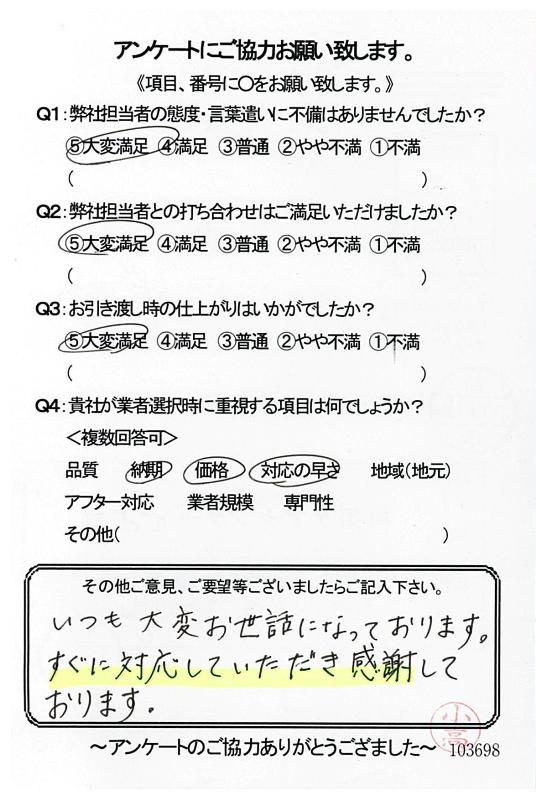 アンケートにご協力お願い致します。
《項目、番号に〇をお願い致します。》
Q1:弊社担当者の態度・言葉遣いに不備はありませんでしたか？
⑤大変満足 ④満足 ③普通 ②やや不満 ①不満
( )
Q2:弊社担当者との打ち合わせはご満足いただけましたか？
⑤大変満足 ④満足 ③普通 ②やや不満 ①不満
( )
Q3:お引き渡し時の仕上がりはいかがでしたか？
⑤大変満足 ④満足 ③普通 ②やや不満 ①不満
( )
Q4:貴社が業者選択時に重視する項目は何でしょうか？
＜複数回答可＞
品質 納期 価格 対応の早さ 地域（地元）
アフター対応 業者規模 専門性
その他( )
その他ご意見、ご要望等ございましたらご記入下さい。
いつも大変お世話になっております。
すぐに対応していただき感謝して
おります。
小高
～アンケートのご協力ありがとうござました～ 103698